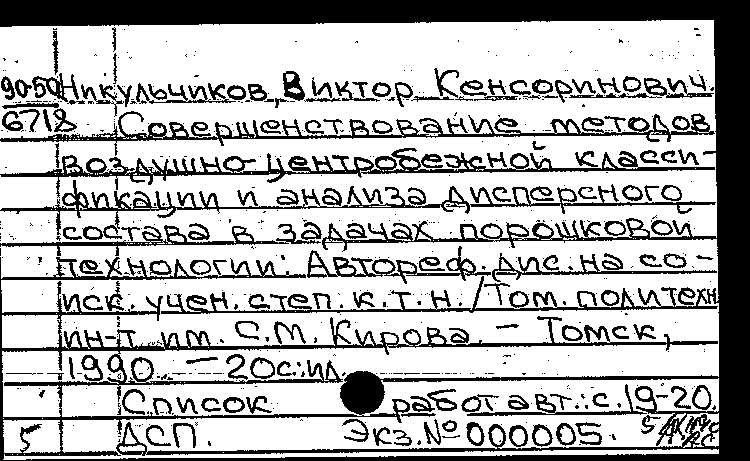 90-50 Никульчиков, Виктор Кенсоринович.
6718 Совершенствование методов
воздушно-центробежной класси-
фикации и анализа дисперсного
состава в задачах порошковой
технологии: Автореф. дис. на со-
иск. учен. степ. к.т.н. / Том. политехн.
ин-т им. С.М. Кирова. - Томск,
1990. - 20с: ил.
Список работ авт.: с. 19-20.
5 ДСП. Экз. № 000005.